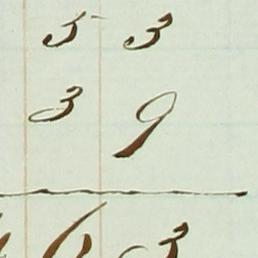 5 3
3 9
6 3